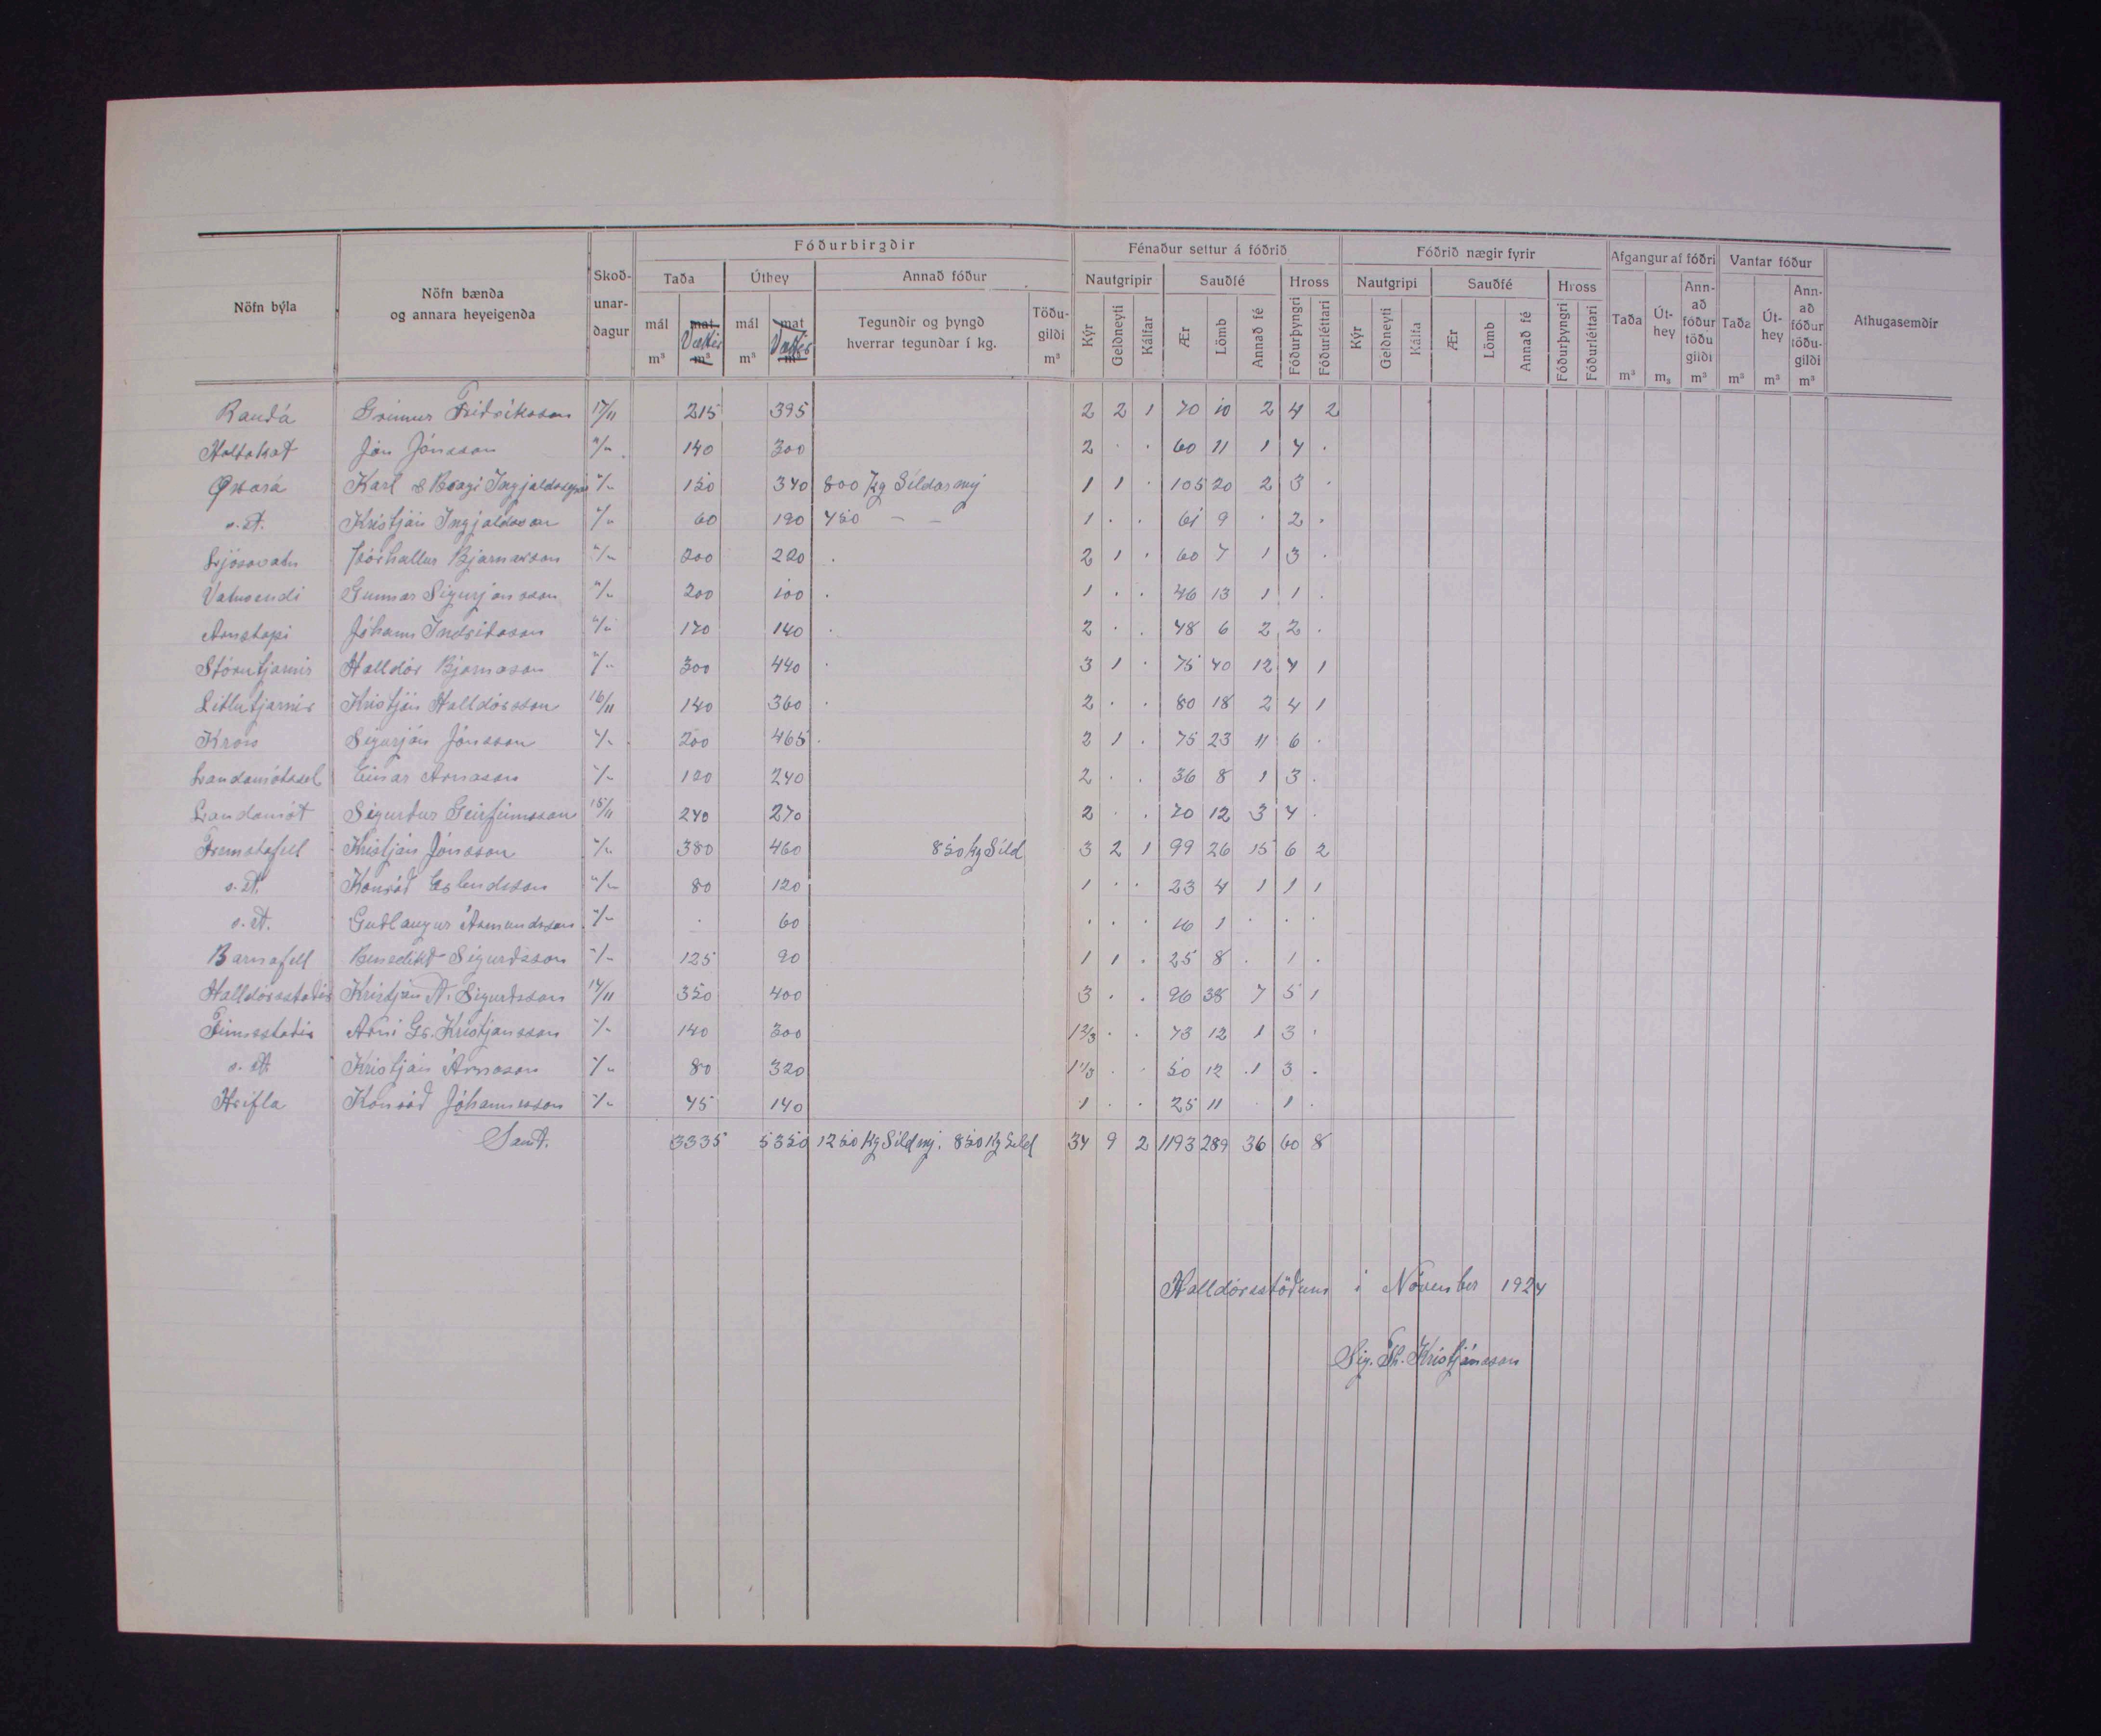 Fóðurbirgðir
Fénaður settur á fóðrið
Fóðrið nægir fyrir
Afgangur af fóðri
Vantar fóður
Nöfn býla
Nöfn bænda
og annara heyeigenda
Skoð-
unar-
dagur
Taða
Úthey
Annað fóður
Nautgripir
Sauðfé
Hross
Nautgripi
Sauðfé
Hross
mál m³
mat Vættir m³
mál m³
mat Vættir m³
Tegundir og þyngd
hverrar tegundar í kg.
Töðu-
gildi
m³
Kýr Geldneyti Kálfar Ær Lömb Annað fé Fóðurþyngri Fóðurléttari
Kýr Geldneyti Kálfa Ær Lömb Annað fé Fóðurþyngri Fóðurléttari
Taða m³
Út-
hey m³
Ann-
að
fóður
töðu
gildi
m³
Taða m³
Út-
hey m³
Ann-
að
fóður
töðu-
gildi
m³
Athugasemdir
Rauðá Grímur Friðriksson 17/11 215 395 2 2 1 70 10 2 4 2
Holtakot Jón Jónsson "/" 140 300 2 · · 60 11 1 4 ·
Öxará Karl & Bragi Ingjaldssynir "/" 150 340 800 kg Síldarmj 1 1 · 105 20 2 3 ·
s. st. Kristján Ingjaldsson "/" 60 190 450 – – 1 · · 61 9 · 2 ·
Ljósavatn Þórhallur Bjarnarson "/" 200 220 · 2 1 · 60 7 1 3 ·
Vatnsendi Gunnar Sigurjónsson "/" 200 100 · 1 · · 46 13 1 1 ·
Arnstapi Jóhann Indriðason "/" 170 140 · 2 · · 48 6 2 2 ·
Stórutjarnir Halldór Bjarnason "/" 300 440 · 3 1 · 75 40 12 4 1
Litlutjarnir Kristján Halldórsson 16/11 140 360 · 2 · · 80 18 2 4 1
Kross Sigurjón Jónsson "/" 200 465 · 2 1 · 75 23 11 6 ·
Landamótssel Einar Árnason "/" 120 240 2 · · 36 8 1 3 ·
Landamót Sigurður Geirfinnsson 15/11 240 270 2 · · 70 12 3 4 ·
Fremstafell Kristján Jónsson "/" 380 460 850 kg Síld 3 2 1 99 26 15 6 2
s. st. Konráð Erlendsson "/" 80 120 1 · · 23 4 1 1 1
s. st. Guðlaugur Ásmundsson "/" · 60 · · · 16 1 · · ·
Barnafell Benedikt Sigurðsson "/" 125 90 1 1 · 25 8 · 1 ·
Halldórsstaðir Kristján A. Sigurðsson 14/11 350 400 3 · · 96 38 7 5 1
Finnsstaðir Árni Gr. Kristjánsson "/" 140 300 1 2/3 · · 73 12 1 3 ·
s. st Kristján Árnason "/" 80 320 1 1/3 · · 50 12 1 3 ·
Hrifla Konráð Jóhannesson "/" 75 140 1 · · 25 11 · 1 ·
Samt. 3335 5350 1250 kg Síldmj. 850 kg Síld 34 9 2 1193 289 36 60 8
Halldórsstöðum í Nóvember 1924
Sig. Th. Kristjánsson